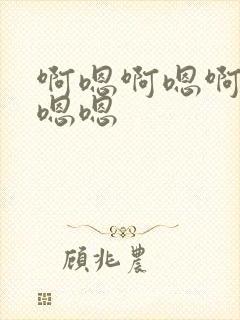 啊嗯啊嗯啊
嗯嗯
顾兆农